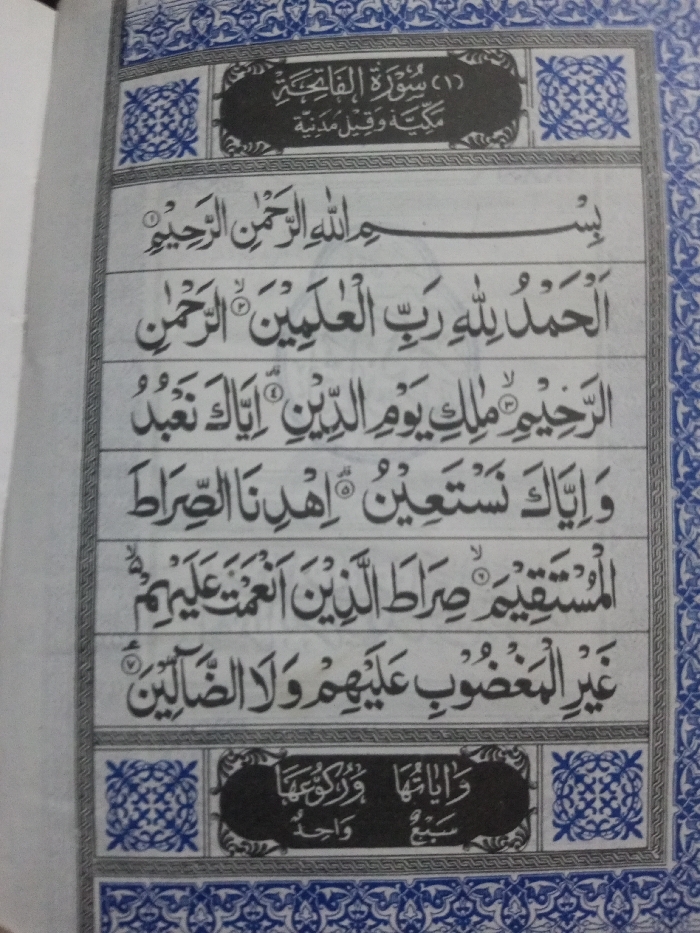 (١) سُوْرَةُ الْفَاتِحَةِ
مَكِّيَّةٌ وَقِيْلَ مَدَنِيَّةٌ
بِسْمِ اللهِ الرَّحْمٰنِ الرَّحِيْمِ ١
اَلْحَمْدُ لِلّٰهِ رَبِّ الْعٰلَمِيْنَ ٢ الرَّحْمٰنِ
الرَّحِيْمِ ٣ مٰلِكِ يَوْمِ الدِّيْنِ ٤ اِيَّاكَ نَعْبُدُ
وَاِيَّاكَ نَسْتَعِيْنُ ٥ اِهْدِنَا الصِّرَاطَ
الْمُسْتَقِيْمَ ٦ صِرَاطَ الَّذِيْنَ اَنْعَمْتَ عَلَيْهِمْ
غَيْرِ الْمَغْضُوْبِ عَلَيْهِمْ وَلَا الضَّآلِّيْنَ ٧
وَاٰيَاتُهَا وَرُكُوْعُهَا
سَبْعٌ وَاحِدٌ